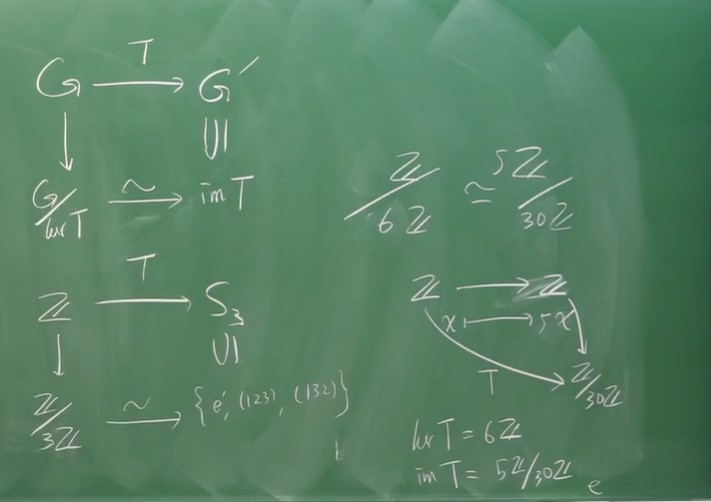 G T→ G′
↓ ∪|
G/ker T ∼→ im T
ℤ T→ S₃
↓ ∪|
ℤ/3ℤ ∼→ {e′, (123), (132)}
ℤ/6ℤ ≃ 5ℤ/30ℤ
ℤ → ℤ
x ↦ 5x
T ℤ/30ℤ
ker T = 6ℤ
im T = 5ℤ/30ℤ
e